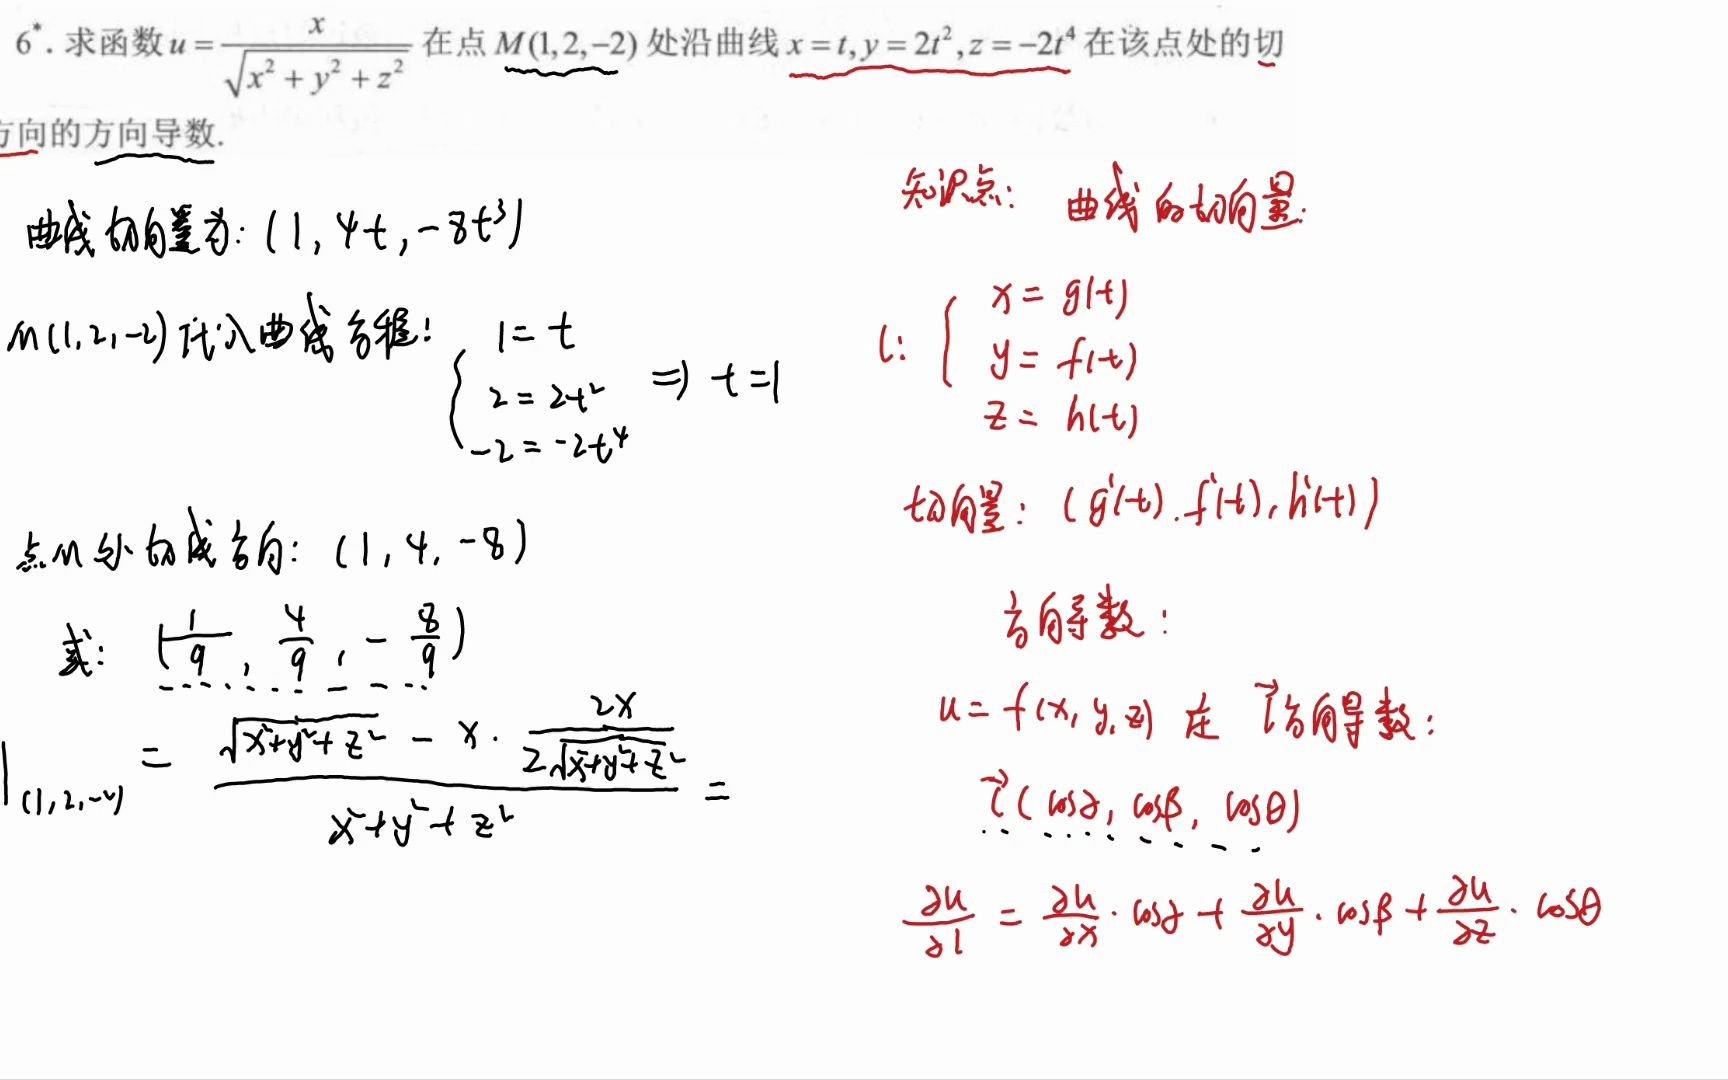 6*. 求函数 u = x / √(x² + y² + z²) 在点 M(1,2,−2) 处沿曲线 x = t, y = 2t², z = −2t⁴ 在该点处的切
方向的方向导数.
曲线切向量为: (1, 4t, −8t³)
M(1,2,−2) 代入曲线方程:
{ 1 = t
2 = 2t² ⇒ t = 1
−2 = −2t⁴
点M处切线方向: (1, 4, −8)
或: (1/9, 4/9, −8/9)
|(1,2,−2) = (√(x²+y²+z²) − x · 2x / (2√(x²+y²+z²))) / (x²+y²+z²) =
知识点: 曲线的切向量:
l: { x = g(t)
y = f(t)
z = h(t)
切向量: (g'(t), f'(t), h'(t))
方向导数:
u = f(x, y, z) 在 l⃗ 方向导数:
l⃗ (cosα, cosβ, cosθ)
∂u/∂l = ∂u/∂x · cosα + ∂u/∂y · cosβ + ∂u/∂z · cosθ